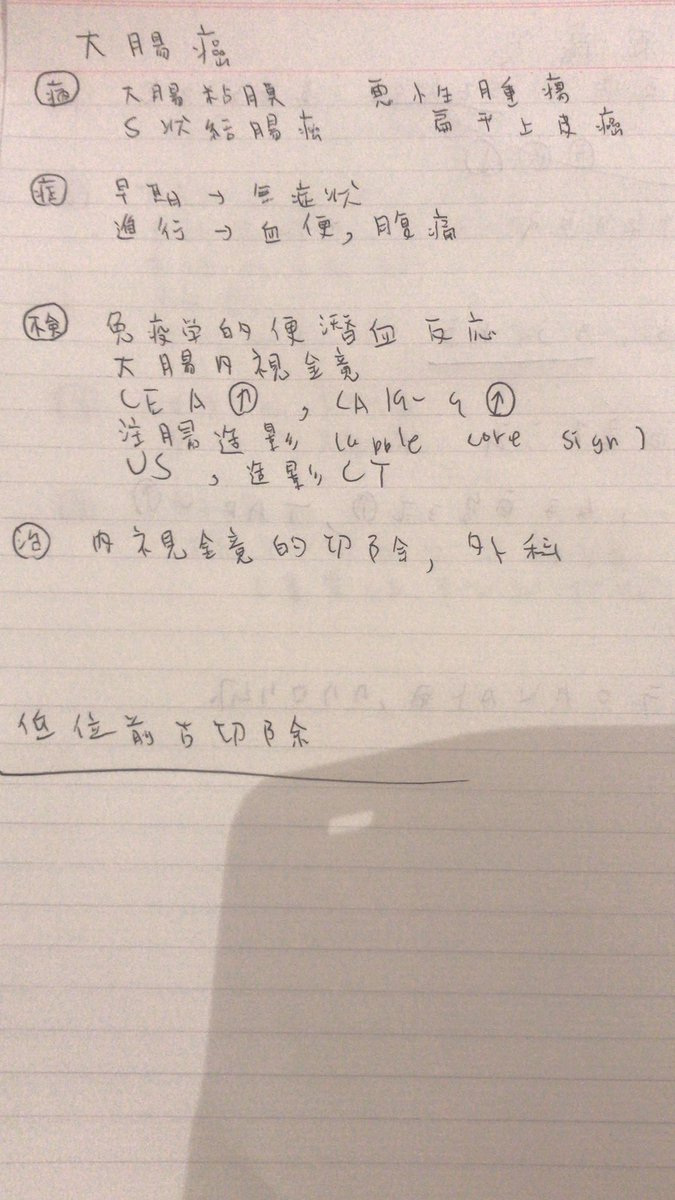 大腸癌
病 大腸粘膜 悪性腫瘍
S状結腸癌 扁平上皮癌
症 早期→無症状
進行→血便,腹痛
検 免疫学的便潜血反応
大腸内視鏡
CEA↑,CA19-9↑
注腸造影(apple core sign)
US,造影CT
治 内視鏡的切除,外科
低位前方切除